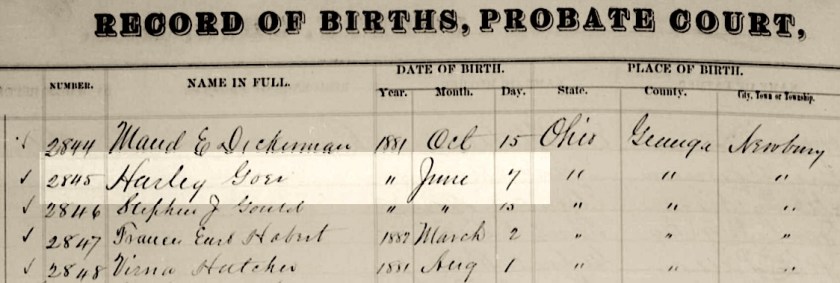 RECORD OF BIRTHS, PROBATE COURT,
DATE OF BIRTH. PLACE OF BIRTH.
NUMBER. NAME IN FULL. Year. Month. Day. State. County. City, Town or Township.
2844 Maud E Dickerman 1881 Oct 15 Ohio Geauga Newbury
2845 Harley Goer " June 7 " " "
2846 Stephen J Gould " " 13 " " "
2847 Frances Earl Hobert 1882 March 2 " " "
2848 Verna Hatcher 1881 Aug 1 " " "